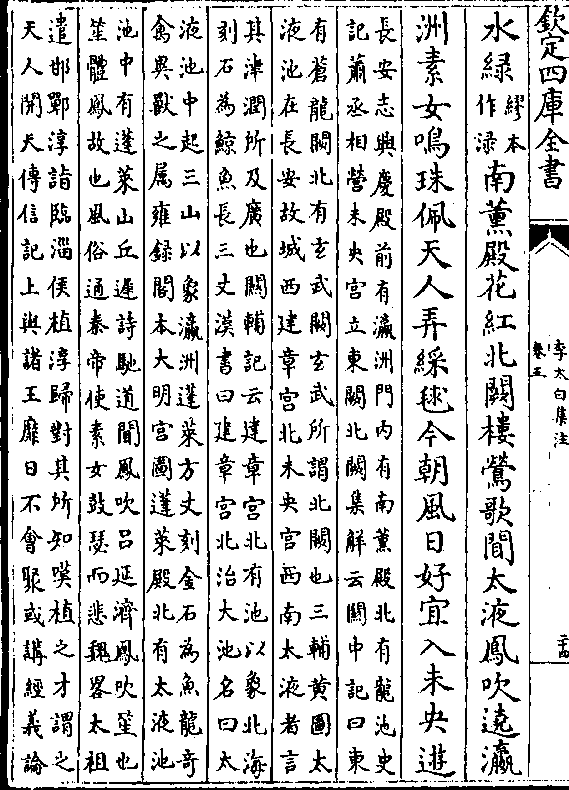 欽定四庫全書
李太白集注
卷五
二四
水緑繆本作渌南薰殿花紅北闕樓鶯歌聞太液鳳吹遶瀛
洲素女鳴珠佩天人弄綵毬今朝風日好宜入未央遊
長安志興慶殿前有瀛洲門内有南薰殿北有龍池史
記蕭丞相營未央宫立東闕北闕集解云關中記曰東
有蒼龍闕北有玄武闕玄武所謂北闕也三輔黄圖太
液池在長安故城西建章宫北未央宫西南太液者言
其津潤所及廣也關輔記云建章宫北有池以象北海
刻石為鯨魚長三丈漢書曰建章宫北治大池名曰太
液池中起三山以象瀛洲蓬萊方丈刻金石為魚龍奇
禽異獸之属雍録閣本大明宫圖蓬萊殿北有太液池
池中有蓬萊山丘遲詩馳道聞鳳吹吕延濟鳳吹笙也
笙體鳳故也風俗通秦帝使素女鼓瑟而悲魏畧太祖
遣邯鄲淳詣臨淄侯植淳歸對其所知嘆植之才謂之
天人開天傳信記上與諸王靡日不會聚或講經義論